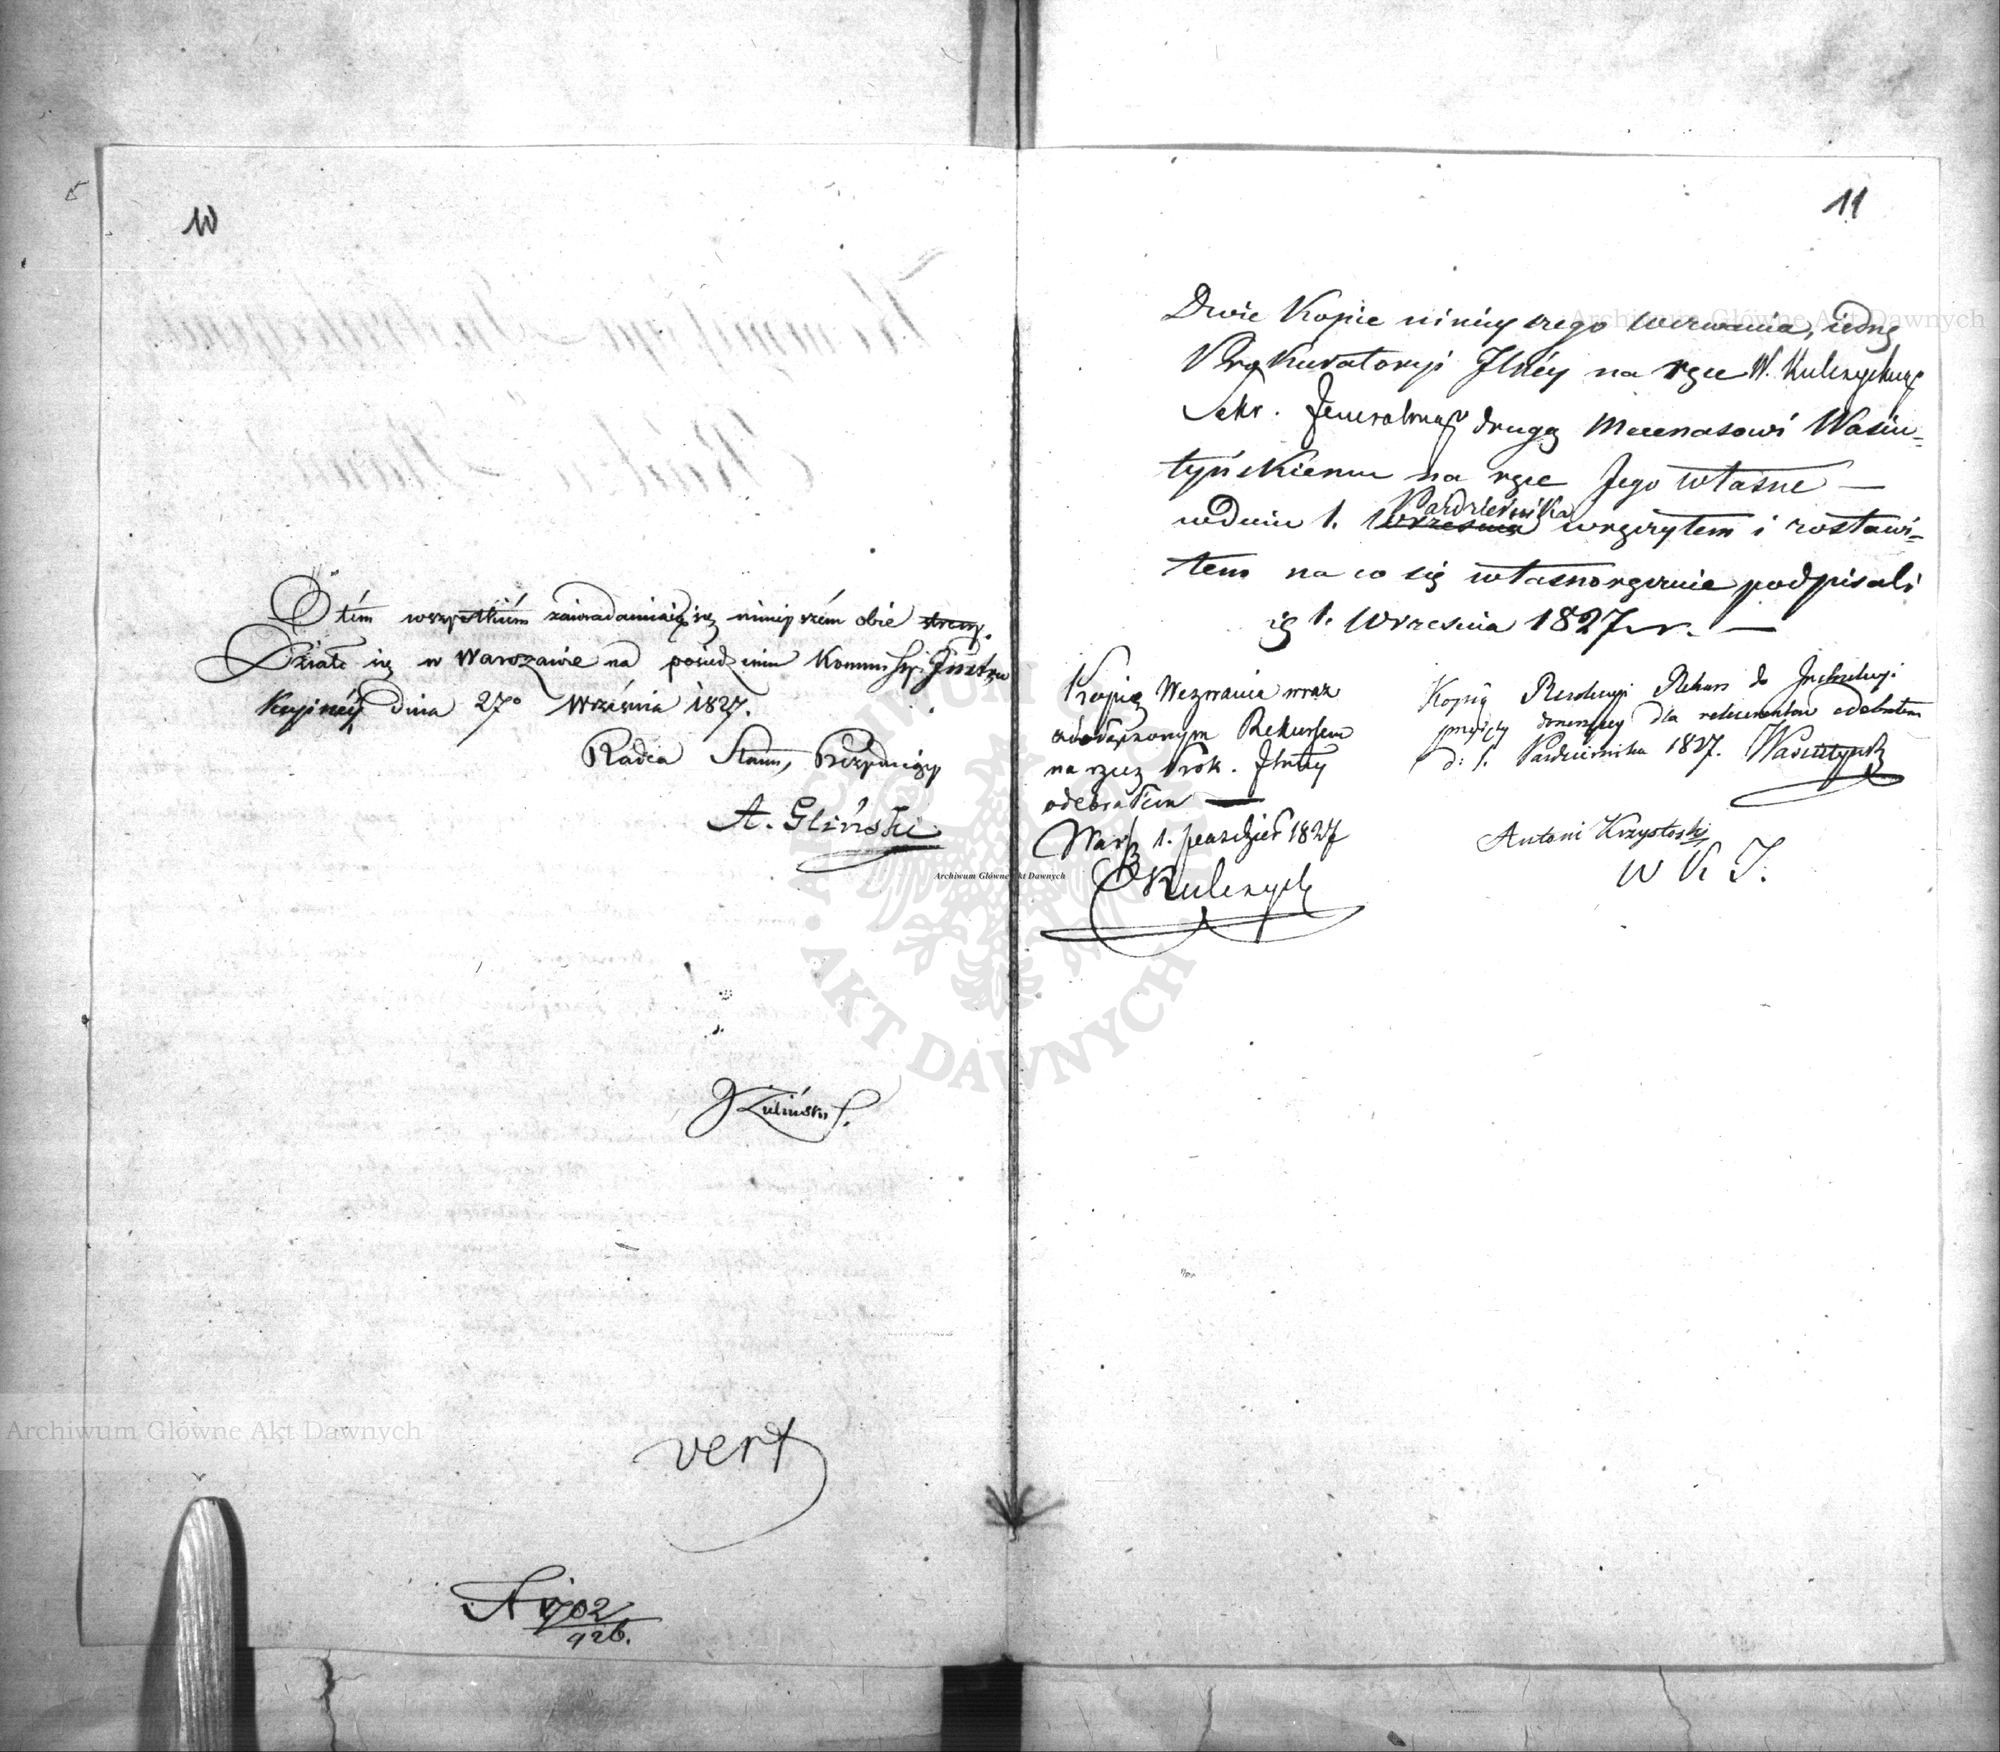 10
O tém wszystkiém zawiadamiaią się ninieyszém obie strony.
Działo się w Warszawie na posiedzeniu Kommissyi Instru
kcyinéy dnia 27º Września 1827.
Radca Stanu, Prezyduiący
A. Gliński
Zieliński S.
vert
N 1702/926.
11
Dwie Kopie ninieyszego wezwania, iedną
Prokuratoryi Jlnéy na ręce W. Kulczyckiego
Sekr. Jeneralnego drugą Mecenasowi Wasiu=
tyńskiemu na ręce Jego własne —
w dniu 1. Września Październikа wręczyłem i zostawi=
łem na co się własnoręcznie podpisali
1. Września 1827 r. —
Kopią Wezwania wraz
z dołączonym Rekursem
na rzecz Prok. Jlnéy
odebrałem —
Warsz 1. paździer 1827
Kulczycki
Kopią Rezolucyi Rekurs do Instrukcyi
dla rekurentów odebrałem
d: 1. Października 1827. Wasiutyński
Antoni Krzystoski
W K J.
Archiwum Główne Akt Dawnych
Archiwum Główne Akt Dawnych
Archiwum Główne Akt Dawnych
ARCHIWUM
AKT DAWNYCH